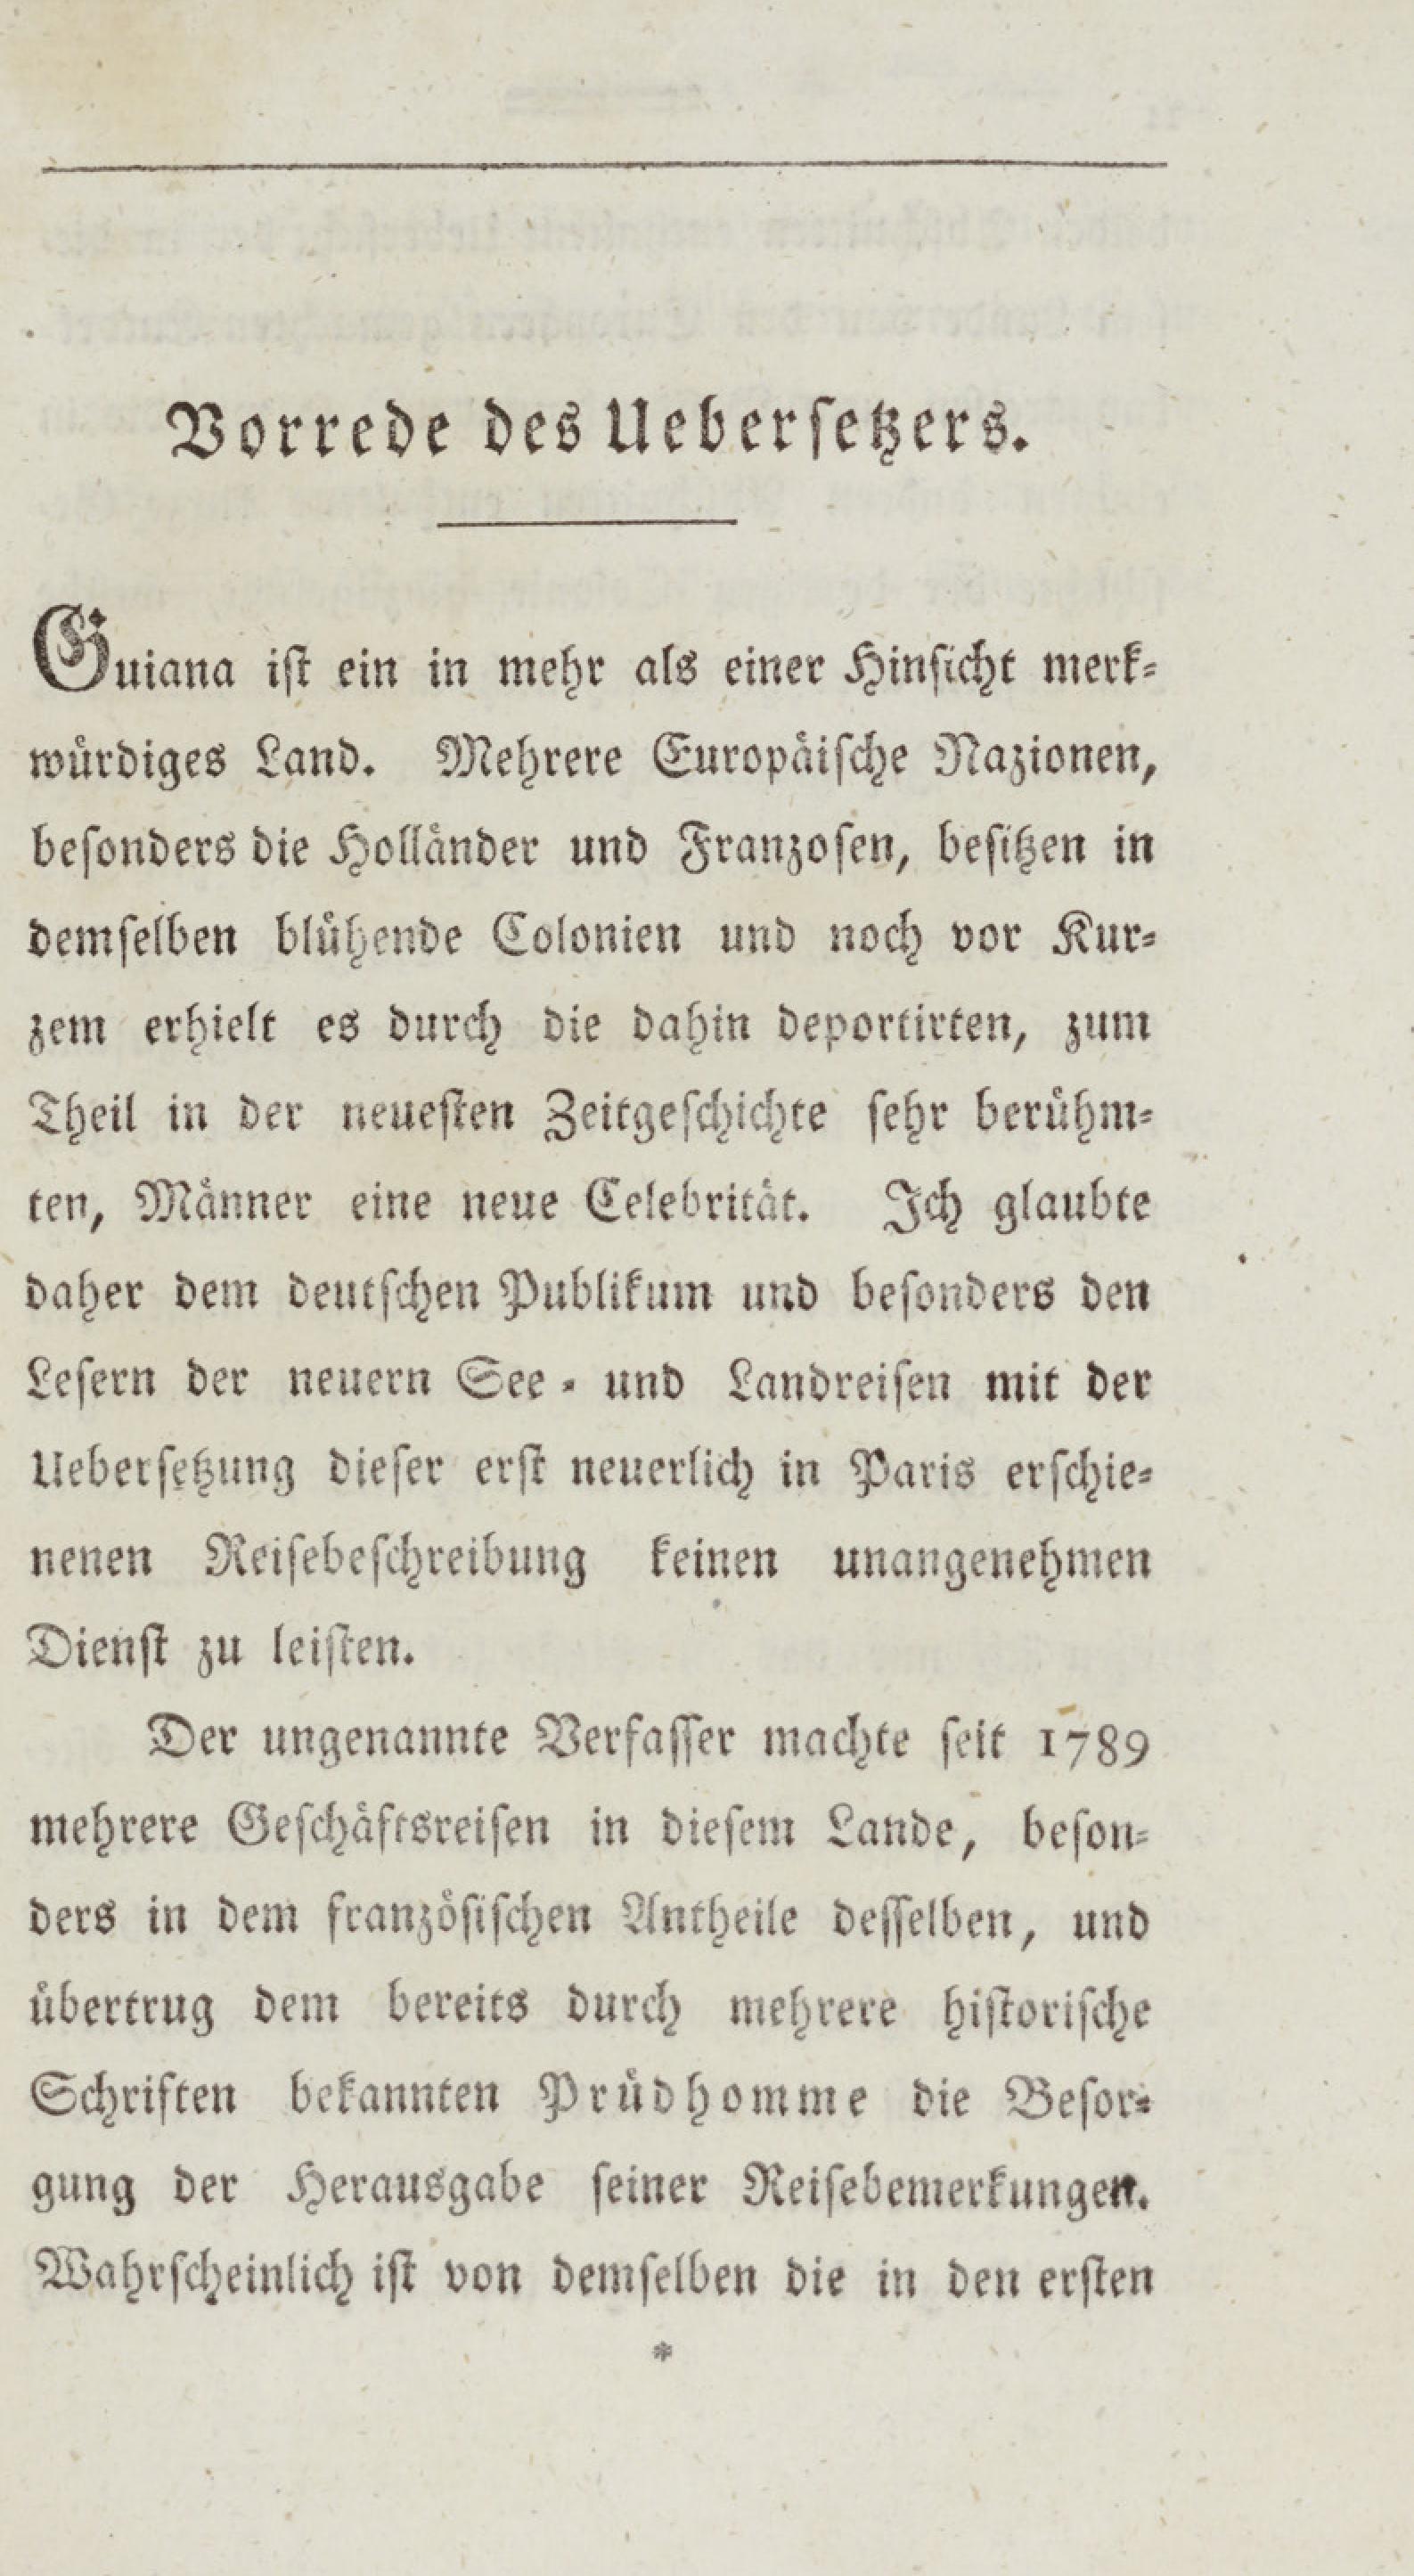 Vorrede des Uebersetzers.
Guiana ist ein in mehr als einer Hinsicht merk-
würdiges Land. Mehrere Europäische Nazionen,
besonders die Holländer und Franzosen, besitzen in
demselben blühende Colonien und noch vor Kur-
zem erhielt es durch die dahin deportirten, zum
Theil in der neuesten Zeitgeschichte sehr berühm-
ten, Männer eine neue Celebrität. Ich glaubte
daher dem deutschen Publikum und besonders den
Lesern der neuern See- und Landreisen mit der
Uebersetzung dieser erst neuerlich in Paris erschie-
nenen Reisebeschreibung keinen unangenehmen
Dienst zu leisten.
Der ungenannte Verfasser machte seit 1789
mehrere Geschäftsreisen in diesem Lande, beson-
ders in dem französischen Antheile desselben, und
übertrug dem bereits durch mehrere historische
Schriften bekannten Prüdhomme die Besor-
gung der Herausgabe seiner Reisebemerkungen.
Wahrscheinlich ist von demselben die in den ersten
*